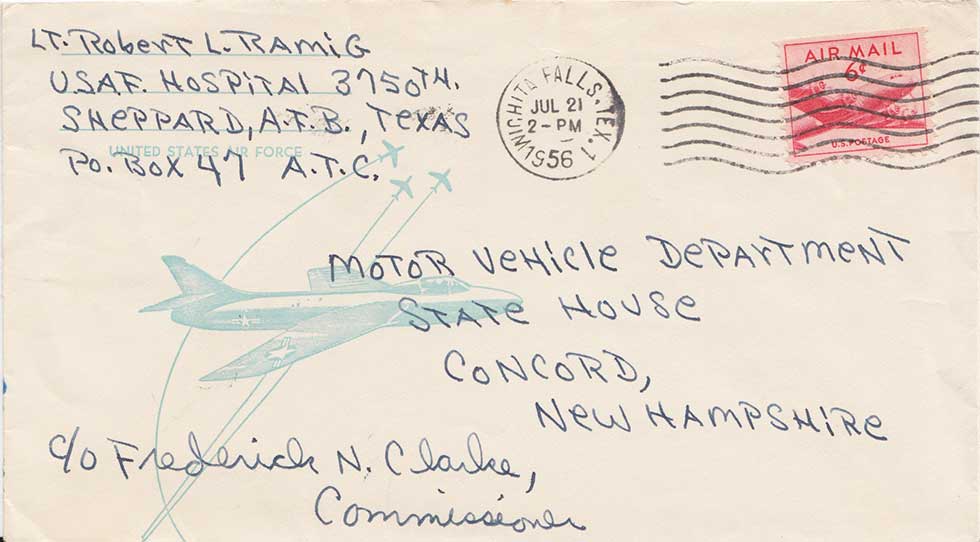 LT. Robert L. Ramig
USAF. Hospital 3750TH.
Sheppard, A.F.B., Texas
UNITED STATES AIR FORCE
P.O. Box 47 A.T.C.
WICHITA FALLS, TEX. 1
JUL 21
2 - PM
1956
AIR MAIL
6¢
U.S. POSTAGE
Motor Vehicle Department
State House
Concord,
New Hampshire
c/o Frederick N. Clarke,
Commissioner